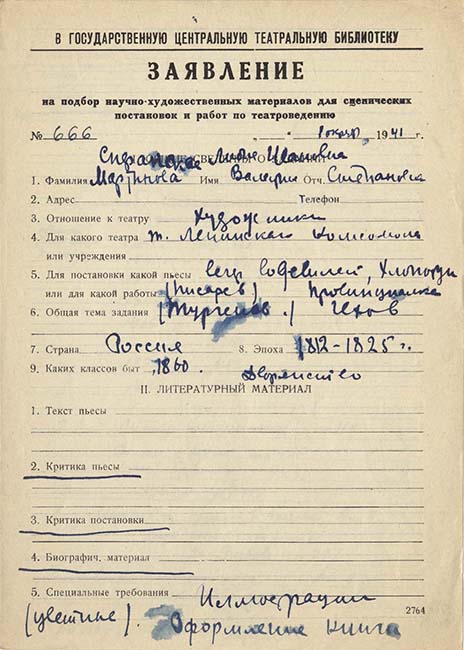 В ГОСУДАРСТВЕННУЮ ЦЕНТРАЛЬНУЮ ТЕАТРАЛЬНУЮ БИБЛИОТЕКУ
ЗАЯВЛЕНИЕ
на подбор научно-художественных материалов для сценических
постановок и работ по театроведению
№ 666 1941 г.
Ивановна
1. Фамилия Мартынова Имя Валерия Отч. Степановна
2. Адрес Телефон
3. Отношение к театру Художники
4. Для какого театра т. Ленинского Комсомола
или учреждения
5. Для постановки какой пьесы Вечер водевилей, Хлопотун
или для какой работы (Писарев) Провинциалка
6. Общая тема задания (Тургенев.) Чехов
7. Страна Россия 8. Эпоха 1812-1825 г.
9. Каких классов быт 1860. Дворянство
II. ЛИТЕРАТУРНЫЙ МАТЕРИАЛ
1. Текст пьесы
2. Критика пьесы
3. Критика постановки
4. Биографич. материал
5. Специальные требования Иллюстрации
2764
(цветные). Оформление книги